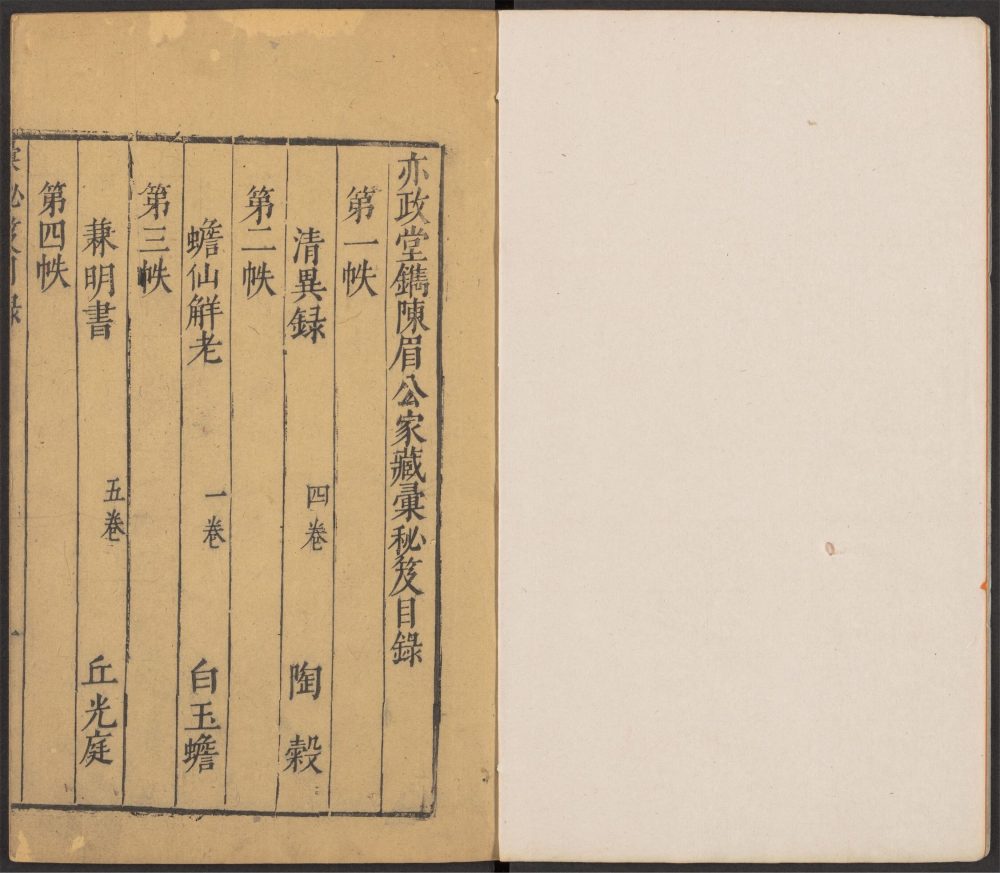 亦政堂鐫陳眉公家藏彙秘笈目錄
第一帙
清異録 四卷 陶穀
第二帙
蟾仙解老 一卷 白玉蟾
第三帙
兼明書 五卷 丘光庭
第四帙